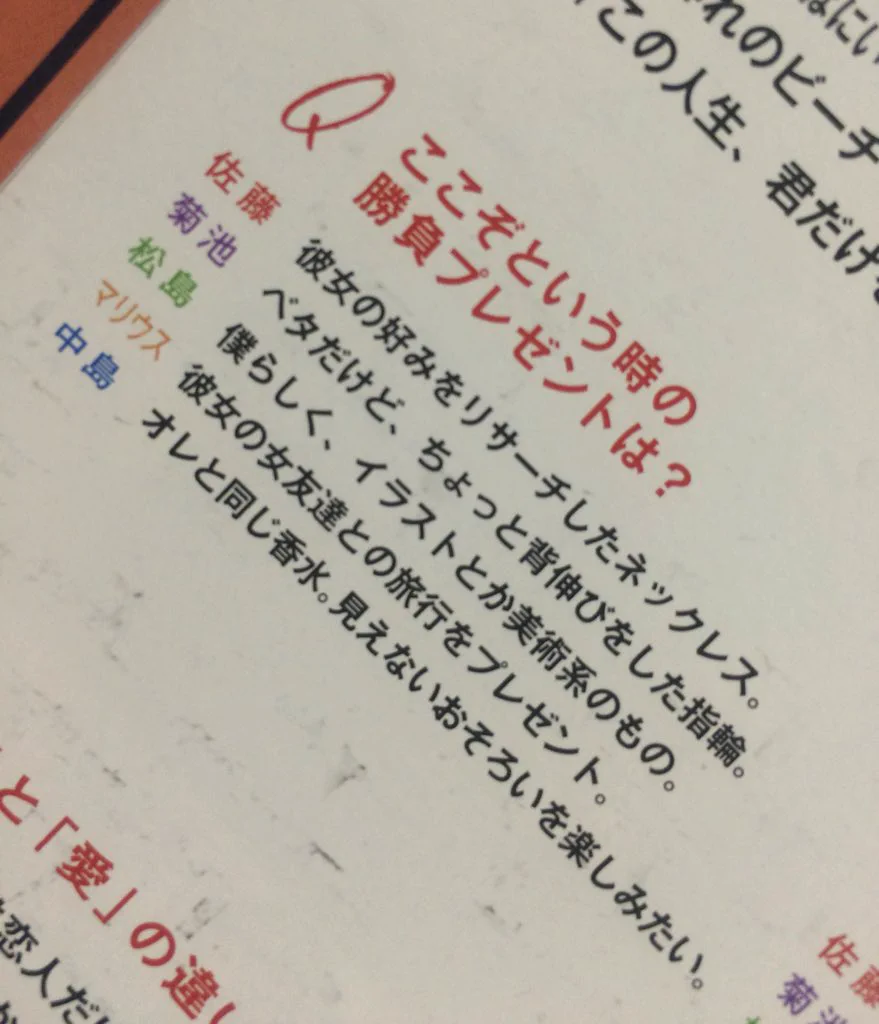 れのビーチ
この人生、君だけ
Q ここぞという時の
勝負プレゼントは？
佐藤 彼女の好みをリサーチしたネックレス。
菊池 ベタだけど、ちょっと背伸びをした指輪。
松島 僕らしく、イラストとか美術系のもの。
マリウス 彼女の女友達との旅行をプレゼント。
中島 オレと同じ香水。見えないおそろいを楽しみたい。
と「愛」の違い
恋人だ
佐藤
菊池